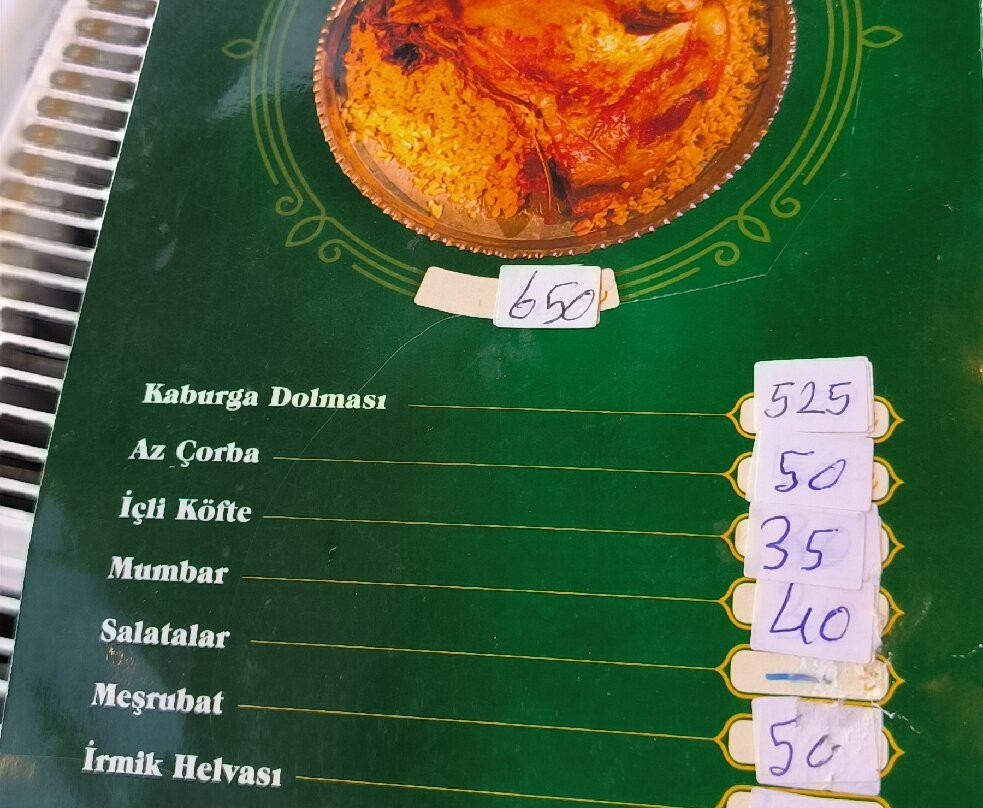 650
Kaburga Dolması 525
Az Çorba 50
İçli Köfte 35
Mumbar 40
Salatalar
Meşrubat 50
İrmik Helvası